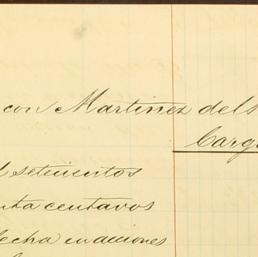 con Martinez del S
Cargo
l setecientos
nta centavos
fecha en acciones